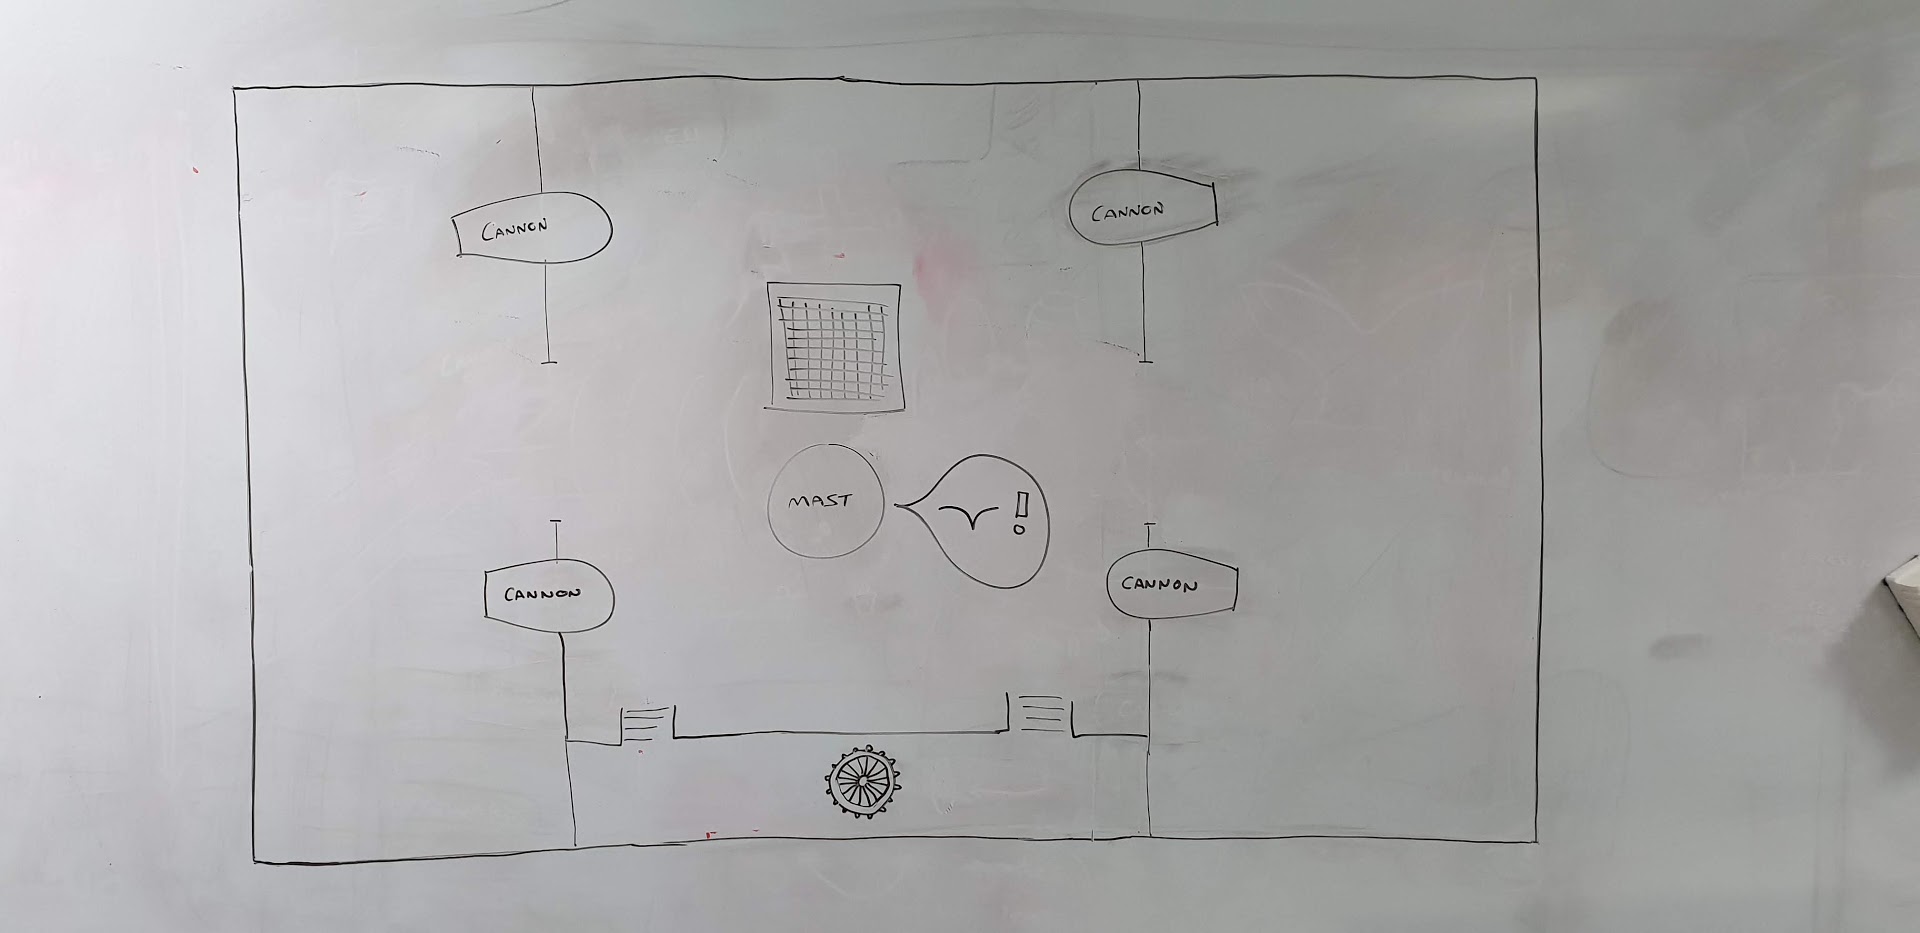 CANNON
CANNON
MAST
!
CANNON
CANNON